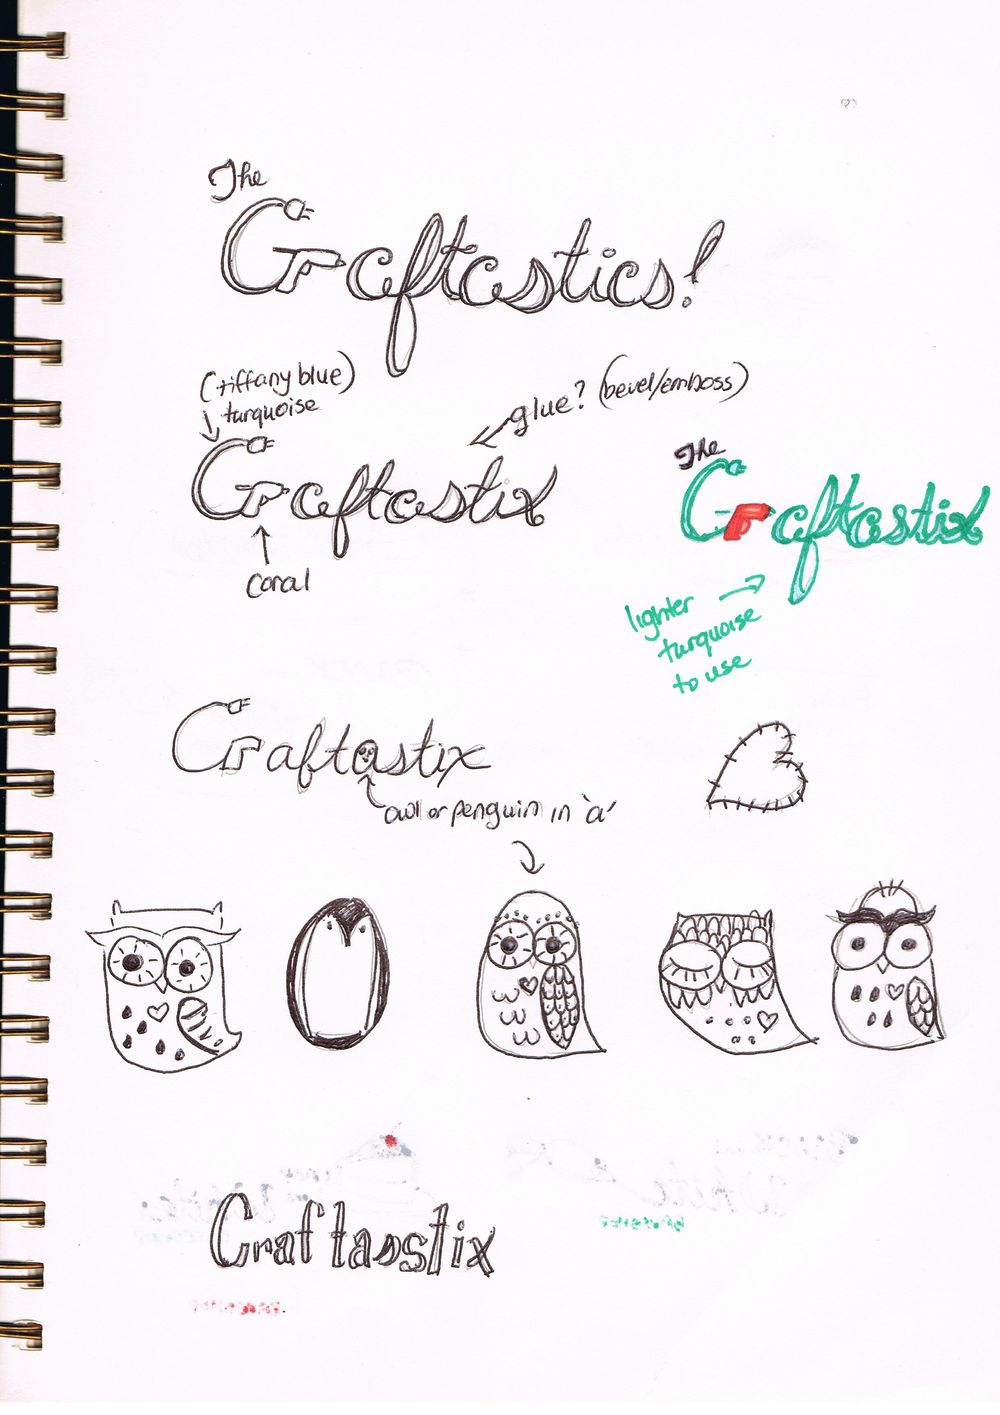 The
Craftastics!
(tiffany blue)
turquoise
glue? (bevel/emboss)
Craftastix
coral
The
Craftastix
lighter
turquoise
to use
Craftastix
owl or penguin in 'a'
Craftasstix